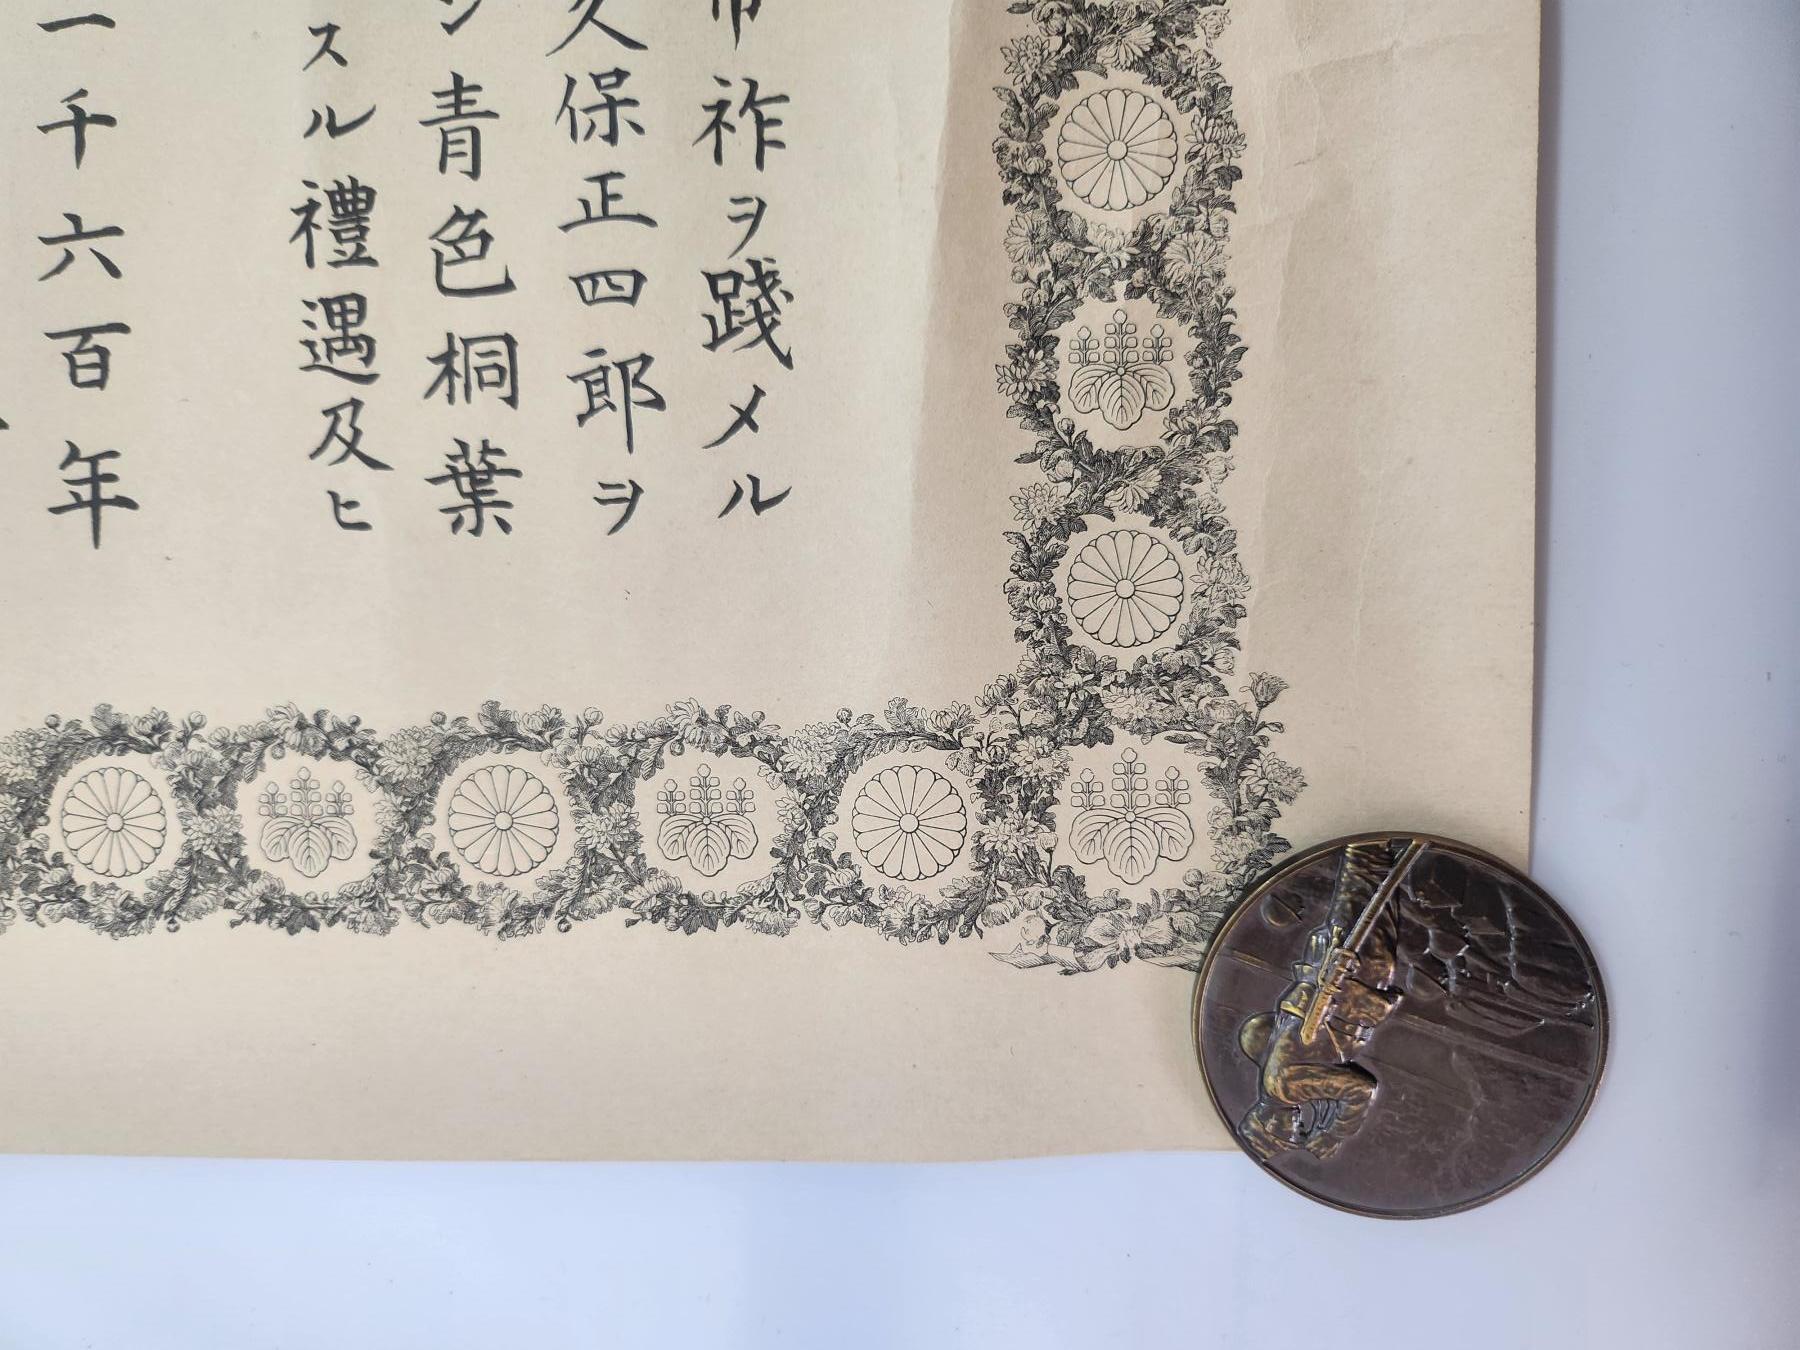 帝祚ヲ踐メル
久保正四郎ヲ
シ青色桐葉
スル禮遇及ヒ
一千六百年